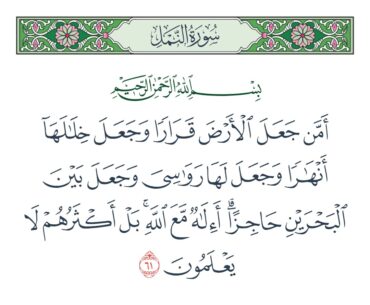 سُورَةُ النَّمۡلِ
بِسۡمِ ٱللَّهِ ٱلرَّحۡمَٰنِ ٱلرَّحِيمِ
أَمَّن جَعَلَ ٱلۡأَرۡضَ قَرَارٗا وَجَعَلَ خِلَٰلَهَآ
أَنۡهَٰرٗا وَجَعَلَ لَهَا رَوَٰسِيَ وَجَعَلَ بَيۡنَ
ٱلۡبَحۡرَيۡنِ حَاجِزًاۗ أَءِلَٰهٞ مَّعَ ٱللَّهِۚ بَلۡ أَكۡثَرُهُمۡ لَا
يَعۡلَمُونَ ٦١